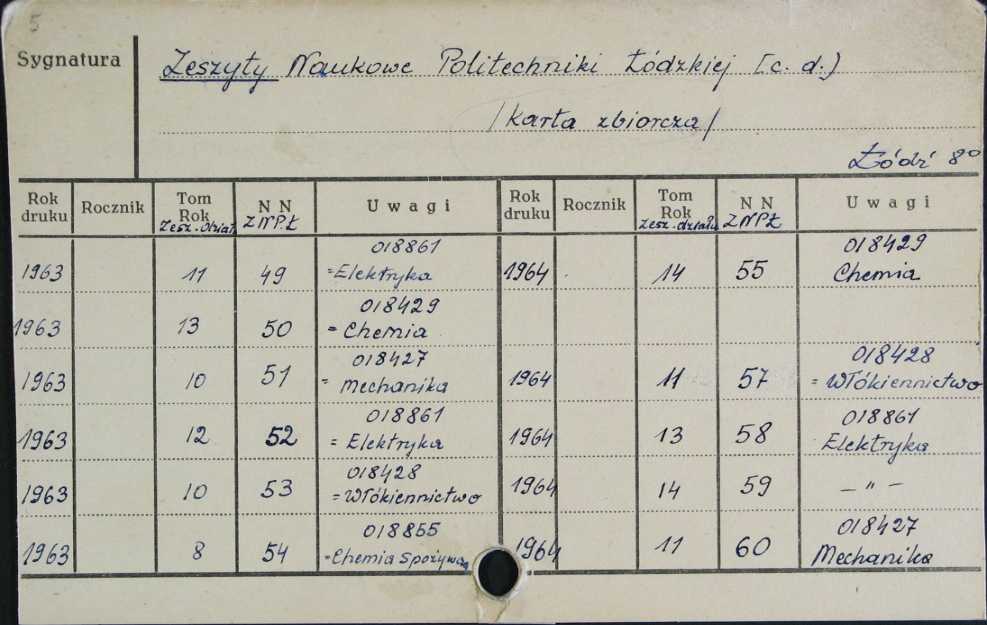 5
Sygnatura
Zeszyty Naukowe Politechniki Łódzkiej [c. d.]
/karta zbiorcza/
Łódź 8º
Rok druku Rocznik Tom Rok Zesz. dział. N N ZNPŁ Uwagi Rok druku Rocznik Tom Rok Zesz. działu N N ZNPŁ Uwagi
018861 018429
1963 11 49 =Elektryka 1964 14 55 Chemia
018429
1963 13 50 = Chemia
018427 018428
1963 10 51 = Mechanika 1964 11 57 = Włókiennictwo
018861 018861
1963 12 52 = Elektryka 1964 13 58 Elektryka
018428
1963 10 53 =Włókiennictwo 1964 14 59 – " –
018855 018427
1963 8 54 =Chemia Spożywcza 1964 11 60 Mechanika